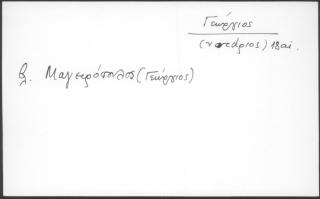 Γεώργιος
(νοτάριος) 18 αἰ.
βλ. Μαγειρόπουλος (Γεώργιος)